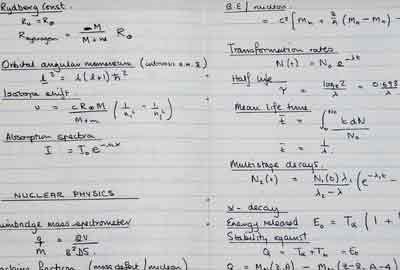 Rydberg Const.
R₀ = R∞
R_Hydrogen = M / (M + m) R∞
Orbital angular momentum
l² = l(l+1) ħ²
Isotope shift.
υ = cR∞M / (M+m) (1/n₁² - 1/n₂²)
Absorption spectra
I = I₀ e^-nσx
NUCLEAR PHYSICS
mass spectrometer
q/m =
(mass defect / nucleon)
B.E / nucleon
= c² [Mn + Z/A (MH - Mn) -
Transformation rates
N(t) = N₀ e^-λt
Half life
τ = loge2 / λ = 0.693 / λ
Mean life time
t̄ = ∫ t dN / N₀
t̄ = 1/λ
Multistage decays.
N₂(t) = N₁(0) λ₁ / (λ₂ - λ₁) (e^-λ₁t -
α - decay
Energy released E₀ = Tα (1 +
Stability against
Q = Tα + Tb = E₀
Q = M(Z,A) - M(Z-2, A-4)